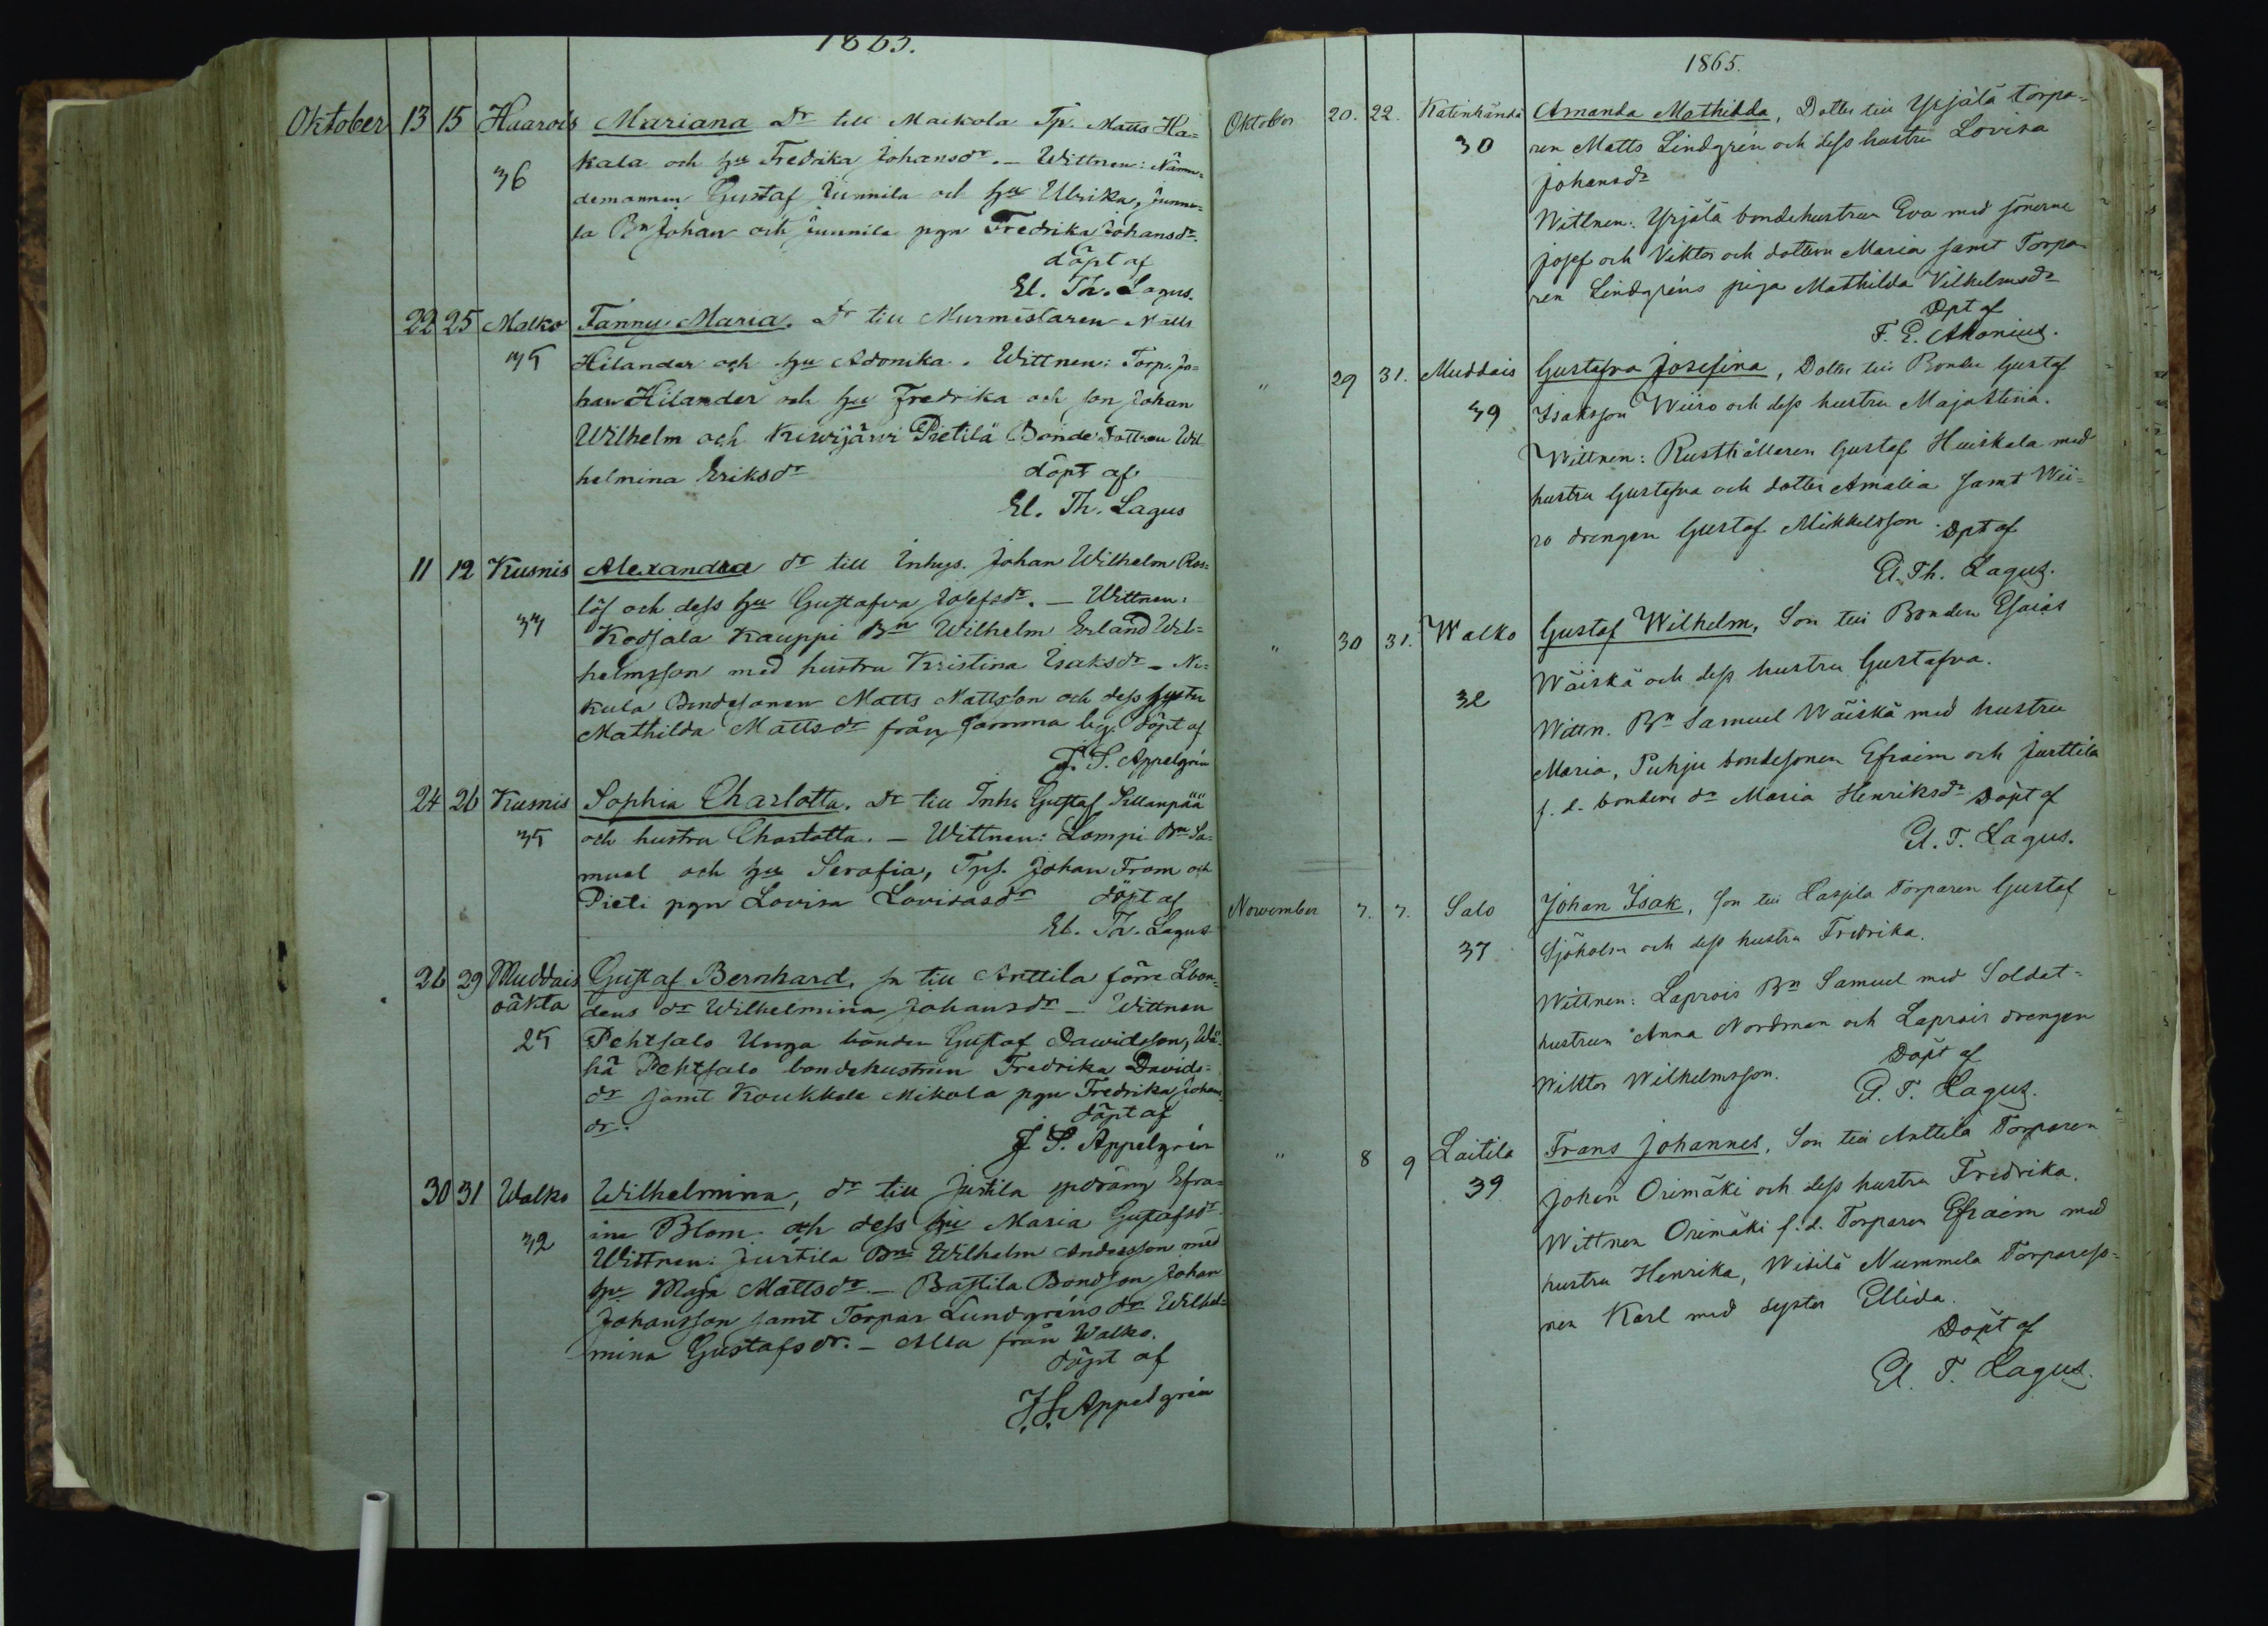 1865.
Oktober 13 15 Huarois Mariana Dr till Maikola Tp. Matts Ha-
36 kala och hu Fredrika Johansdr. — Wittnen: Näm-
demannen Gustaf Junnila och hu Ulrika, Junni-
la Bn Johan och Junnila pgn Fredrika Johansdr.
döpt af
El. Th. Lagus.
22 25 Malko Fanny Maria. Dr till Murmestaren Matts
35 Hilander och hu Adomika. Wittnen: Torp. Jo-
han Hilander och hu Fredrika och son Johan
Wilhelm och Kiwijärwi Pietilä Bonde dottren Wil-
helmina Eriksdr döpt af
El. Th. Lagus
11 12 Kusnis Alexandra dr till Inhys. Johan Wilhelm Ros-
löf och dess hu Gustafva Josefsdr. — Wittnen:
33 Kodjala Kauppi Bn Wilhelm Erland Wil-
helmsson med hustru Kristina Isaksdr — Ni-
kula Bondesonen Matts Mattsson och dess syster
Mathilda Mattsdr från samma by. döpt af
J. S. Appelgrén
24 26 Kusnis Sophia Charlotta. Dr till Inhs Gustaf Sillanpää
35 och hustru Charlotta. — Wittnen: Lampi Bn Sa-
muel och hu Serafia, Tps. Johan From och
Pieti pgn Lovisa Lovisasdr döpt af
El. Th. Lagus
26 29 Muddais Gustaf Bernhard, sn till Anttila förre Lbon-
oäkta dens dr Wilhelmina Johansdr — Wittnen
25 Pehtsalo Unga bonden Gustaf Davidsson, Wä-
hä Pehtsalo bondehustrun Fredrika Davids-
dr samt Koukkela Mikola pgn Fredrika Johans-
dr. döpt af
J. S. Appelgrén
30 31 Walko Wilhelmina, dr till Justila spdräng Efra-
32 im Blom och dess hu Maria Gustafsdr.
Wittnen: Justila Bn Wilhelm Andersson med
hu Maja Mattsdr. — Bastila Bondson Johan
Johansson samt Torpar Lundgréns dr Wilhel-
mina Gustafsdr. — Alla från Walko.
döpt af
J. S. Appelgrén
1865.
Oktober 20. 22. Katinhändä Amanda Mathilda, Dotter till Yrjälä torpa-
30 ren Matts Lindgrén och dess hustru Lovisa
Johansdr
Wittnen: Yrjälä bondehustrun Eva med sönerne
Josef och Viktor och dottern Maria samt Torpa-
ren Lindgréns piga Mathilda Vilhelmsdr
Dpt af
F. E. Akonius.
" 29 31. Muddais Gustafva Josefina, Dotter till Bonden Gustaf
39 Isaksson Wiiro och dess hustru Maja Stina.
Wittnen: Rusthållaren Gustaf Huiskala med
hustru Gustafva och dotter Amalia samt Wii-
ro drengen Gustaf Mikkelsson. Dpt af
El. Th. Lagus.
" 30 31. Walko Gustaf Wilhelm, Son till Bonden Esaias
Wäiskä och dess hustru Gustafva.
32 Wittn. Bn Samuel Wäiskä med hustru
Maria, Puhju bondesonen Efraim och Justtila
f. d. bondens dr Maria Henriksdr Döpt af
El. T. Lagus.
November 7. 7. Salo Johan Isak, Son till Kasjila Torparen Gustaf
37 Sjöholm och dess hustru Fredrika.
Wittnen: Laprois Bn Samuel med Soldat-
hustrun Anna Nordman och Laprois drengen
Wiktor Wilhelmsson. Döpt af
El. T. Lagus.
" 8 9 Laitila Frans Johannes, Son till Anttila Torparen
39 Johan Orimäki och dess hustru Fredrika.
Wittnen Orimäki f. d. Torparen Efraim med
hustru Henrika, Wisilä Nummela Torpareso-
nen Karl med syster Ellida.
Döpt af
El. T. Lagus.